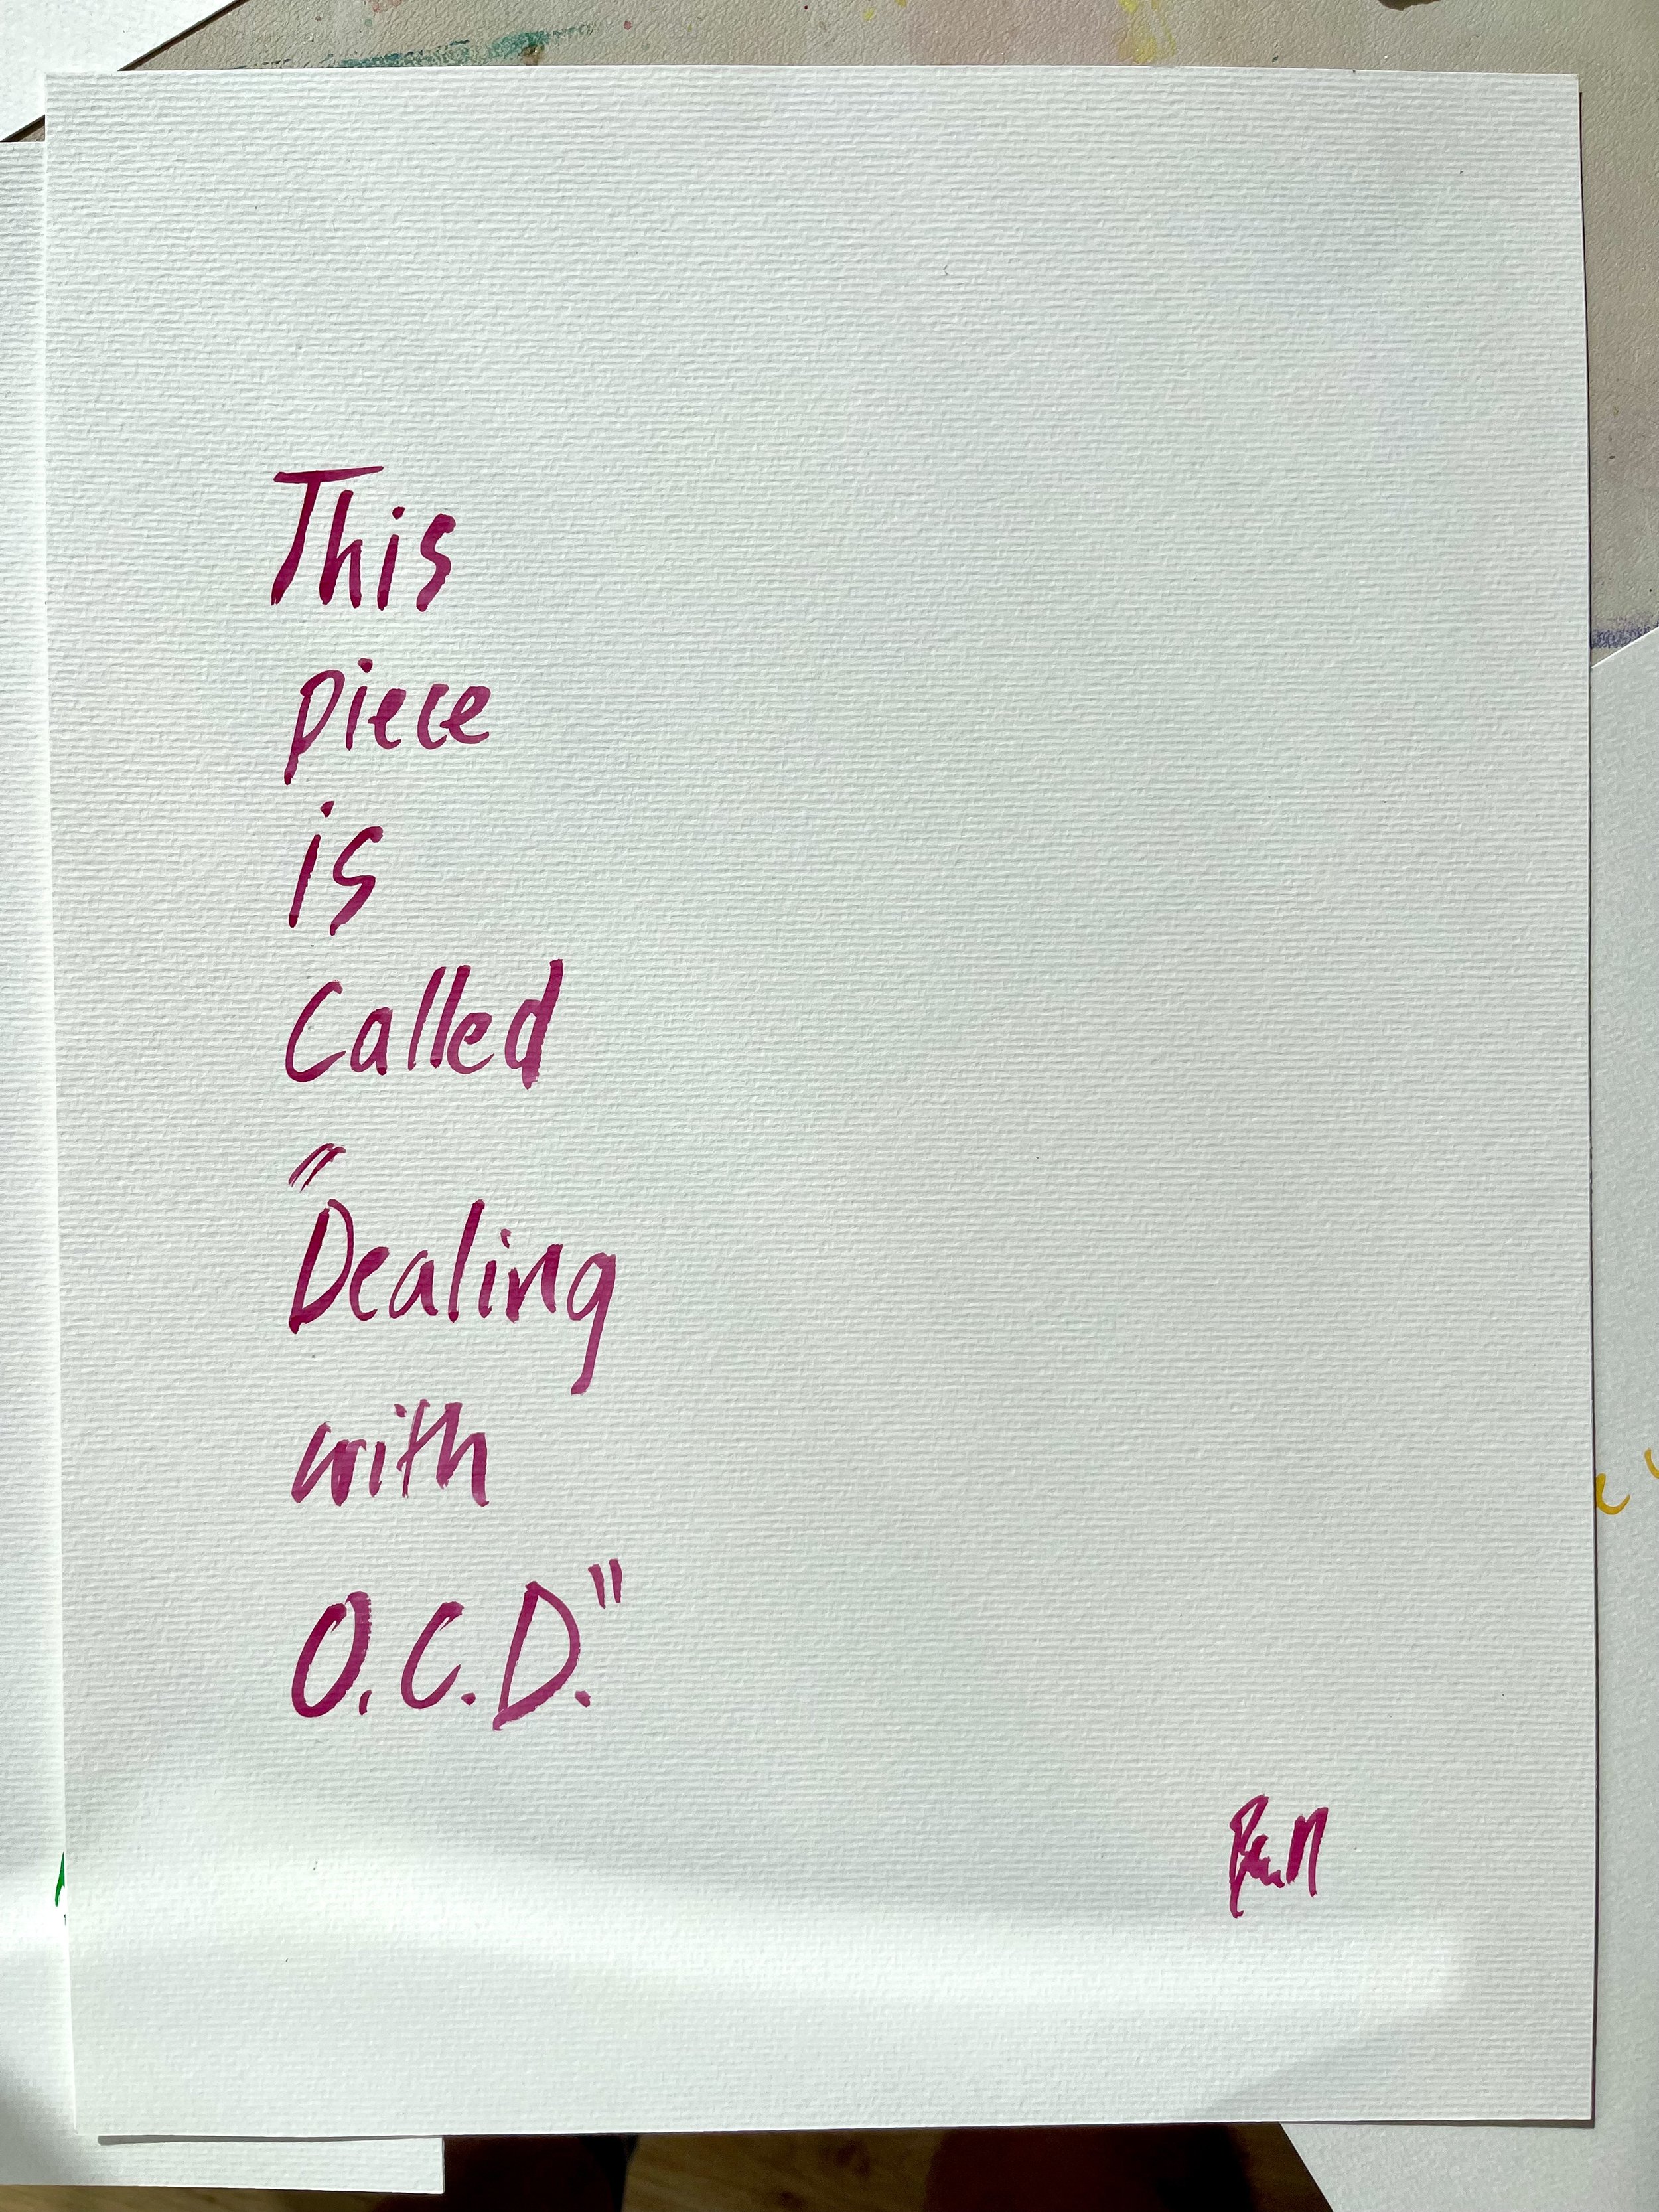 This
piece
is
Called
"
Dealing
with
O.C.D."